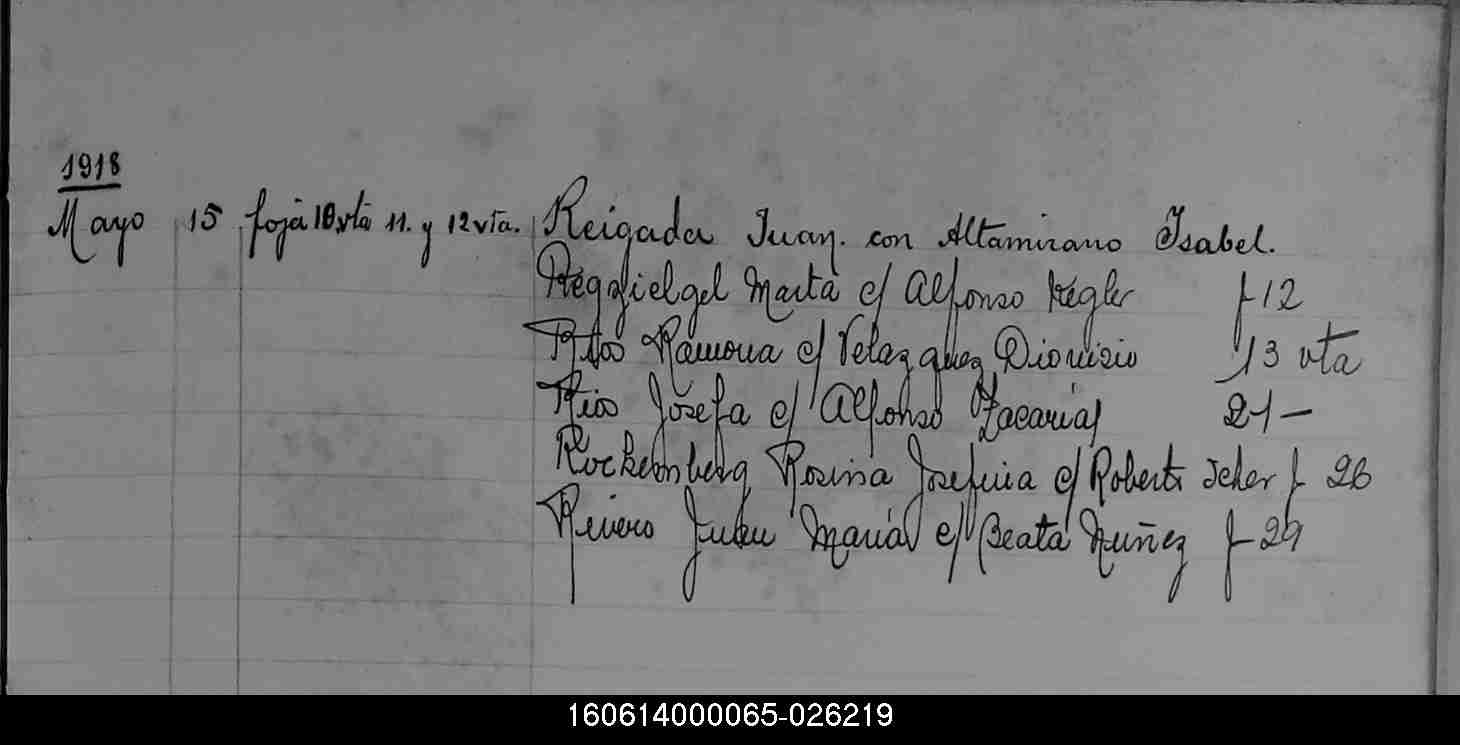 1918
Mayo 15 foja 10 vta 11. y 12 vta. Reigada Juan. con Altamirano Isabel.
Marta c/ Alfonso Kégler f 12
Ramona c/ Velazquez Dionisio 13 vta
Rios Josefa c/ Alfonso Zacarias 21 —
Rockemberg Rosina Josefina c/ Roberto f 26
Rivero Juan Maria c/ Beata Nuñez f 29
160614000065-026219